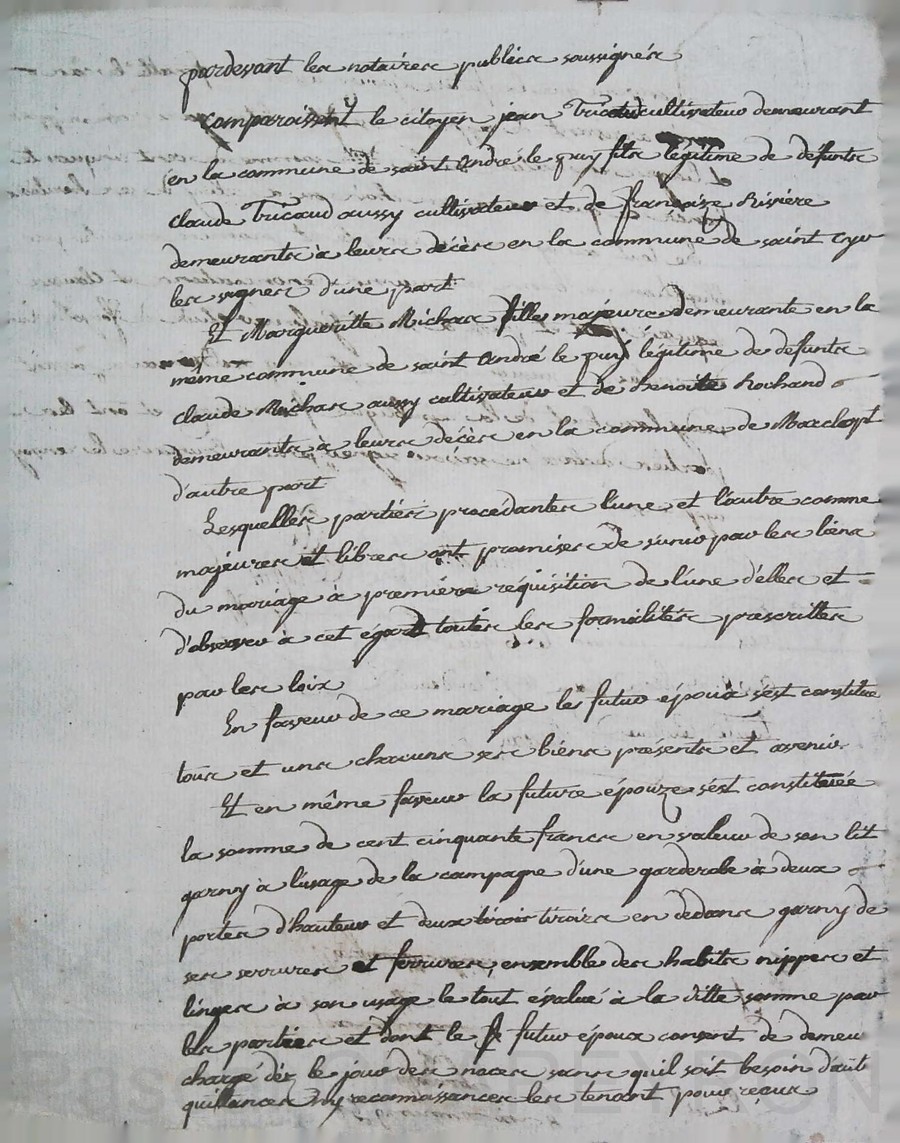 pardevant les notaires publics soussignés
Comparaissent le citoyen jean Tricaud cultivateur demeurant
en la commune de saint André le puy fils légitime de défunts
Claude Tricaud aussy cultivateur et de françoise Rivière
demeurants à leurs décès en la commune de saint Cyr
les vignes d'une part
Et Margueritte Michas fille majeure demeurante en la
même commune de saint André le puy légitime de défunts
Claude Michas aussy cultivateur et de Benoite Rochand
demeurants à leurs décès en la commune de Marclopt
d'autre part
Lesquelles parties procédantes l'une et l'autre comme
majeures et libres ont promises de s'unir par les liens
du mariage à première réquisition de l'une d'elles et
d'observer à cet égard toutes les formalités prescrittes
par les loix
En faveur de ce mariage le futur époux s'est constitué
tous et uns chacuns ses biens présents et avenir
Et en même faveur la future épouze s'est constituée
la somme de cent cinquante francs en valeur de son lit
garny à l'usage de la campagne d'une garderobe à deux
portes d'hauteur et deux tiroirs en dedans garny de
ses serrures et ferrures, ensemble des habits nippes et
linges à son usage le tout évalué à la ditte somme par
les parties et dont le futur époux consent de demeu
chargé dès le jour des noces sans qu'il soit besoin d'aut
quittances ny reconnaissances les tenant pour reçus